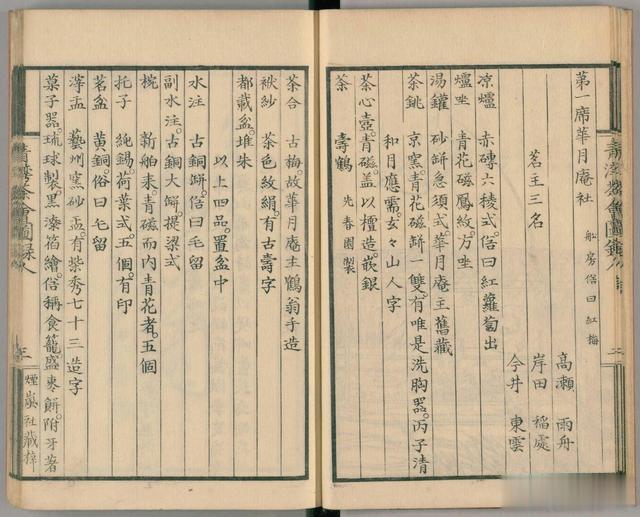 第一席華月庵社 船房俗曰紅梅
茗主三名
高瀬 雨舟
岸田 稲處
今井 東雲
凉爐 赤磚六稜式。俗曰紅蘿蔔出
爐坐 青花磁鳳紋。方坐
湯鑵 砂缾急須式。華月庵主舊藏
茶銚 京窯。青花磁缾一雙。有唯是洗胸器。丙子清
和月應需。玄々山人字
茶心壺。青磁。蓋以檀造。嵌銀
茶 壽鶴 先春園製
茶合 古梅。故華月庵主鶴翁手造
袱紗 茶色紋絹。有古壽字
都載盆。堆朱
以上四品。置盆中
水注 古銅缾。俗曰毛留
副水注。古銅大缾。提梁式
椀 新舶来。青磁而内青花者。五個
托子 純錫。荷葉式。五個。有印
茗盆 黄銅。俗曰毛留
滓盂 藝州窯砂盂。有紫秀七十三造字
菓子器。琉球製。黒漆描繪。俗稱食籠。盛棗餅。附牙箸
三
煙嵐社藏梓